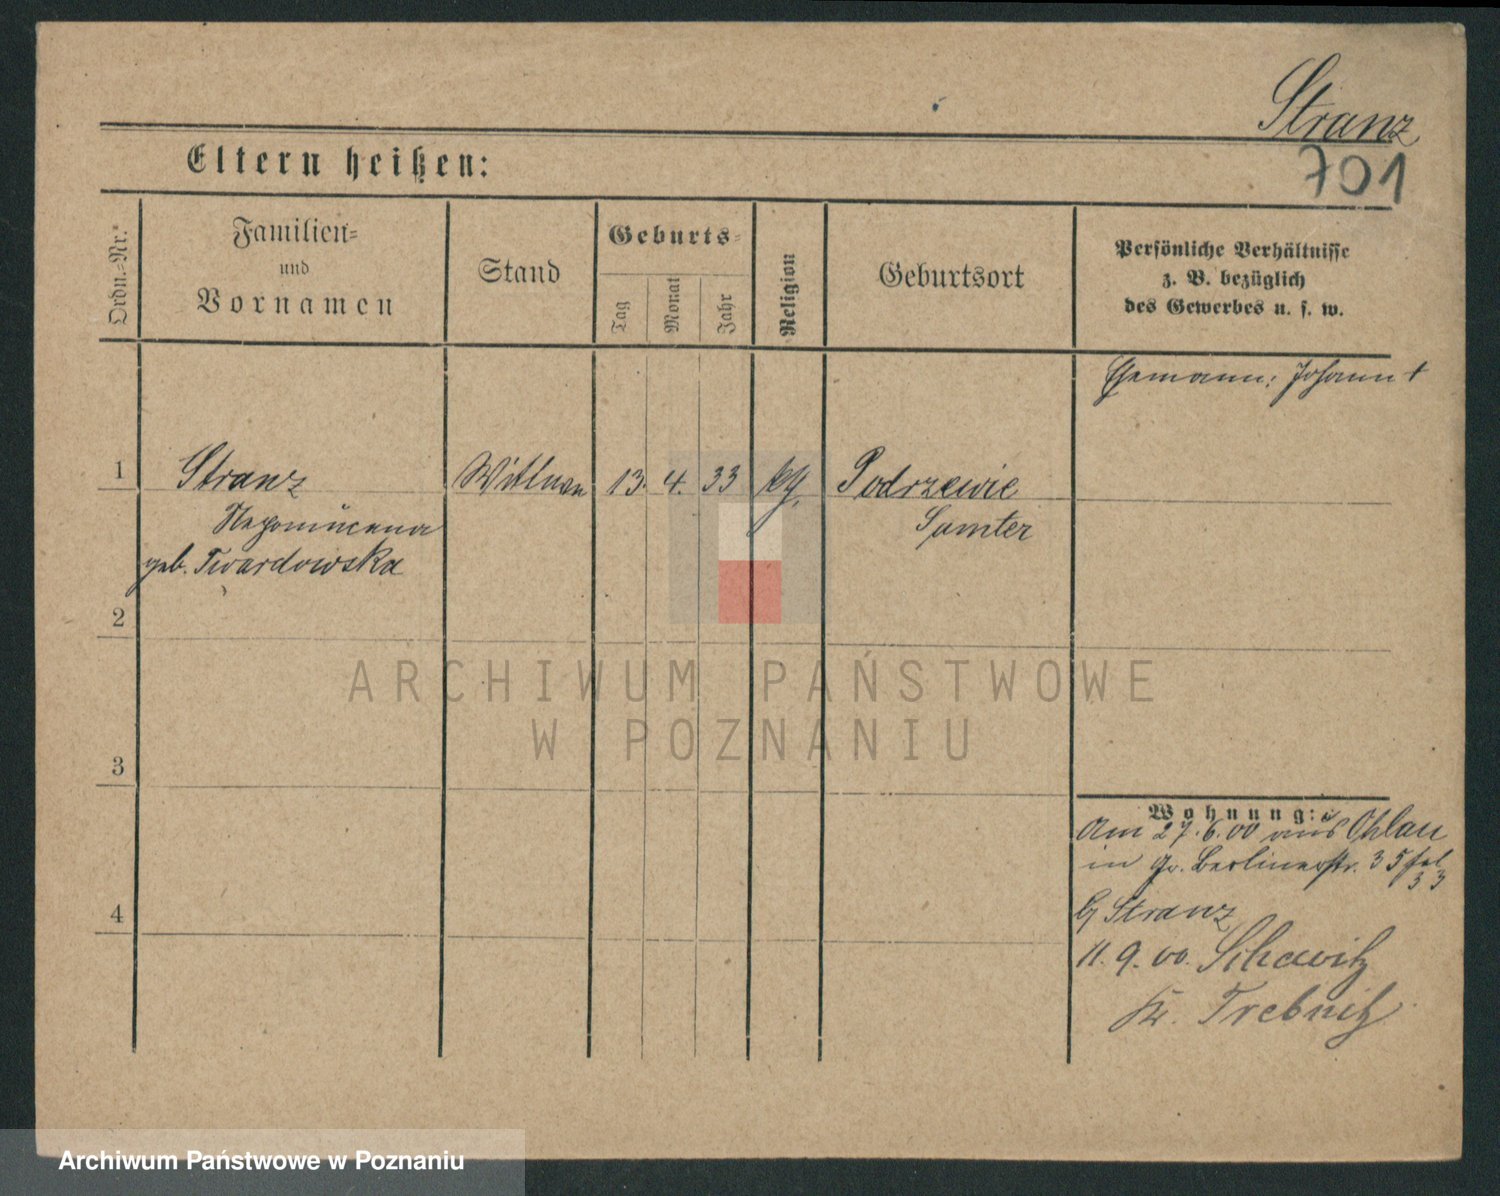 Stranz
701
Eltern heißen:
Ordn.-Nr.
Familien-
und
Vornamen
Stand
Geburts-
Tag
Monat
Jahr
Religion
Geburtsort
Persönliche Verhältnisse
z. B. bezüglich
des Gewerbes u. s. w.
Ehemann: Johann +
1 Stranz Wittwe 13. 4. 33 kg. Podrzewie
Nepomucena Samter
geb. Twardowska
2
ARCHIWUM PAŃSTWOWE
W POZNANIU
3
Wohnung:
Am 27.6.00 aus Ohlau
in Gr. Berlinerstr. 35
33
4
bei Stranz
11. 9. 00. Schawitz
Kr. Trebnitz
Archiwum Państwowe w Poznaniu